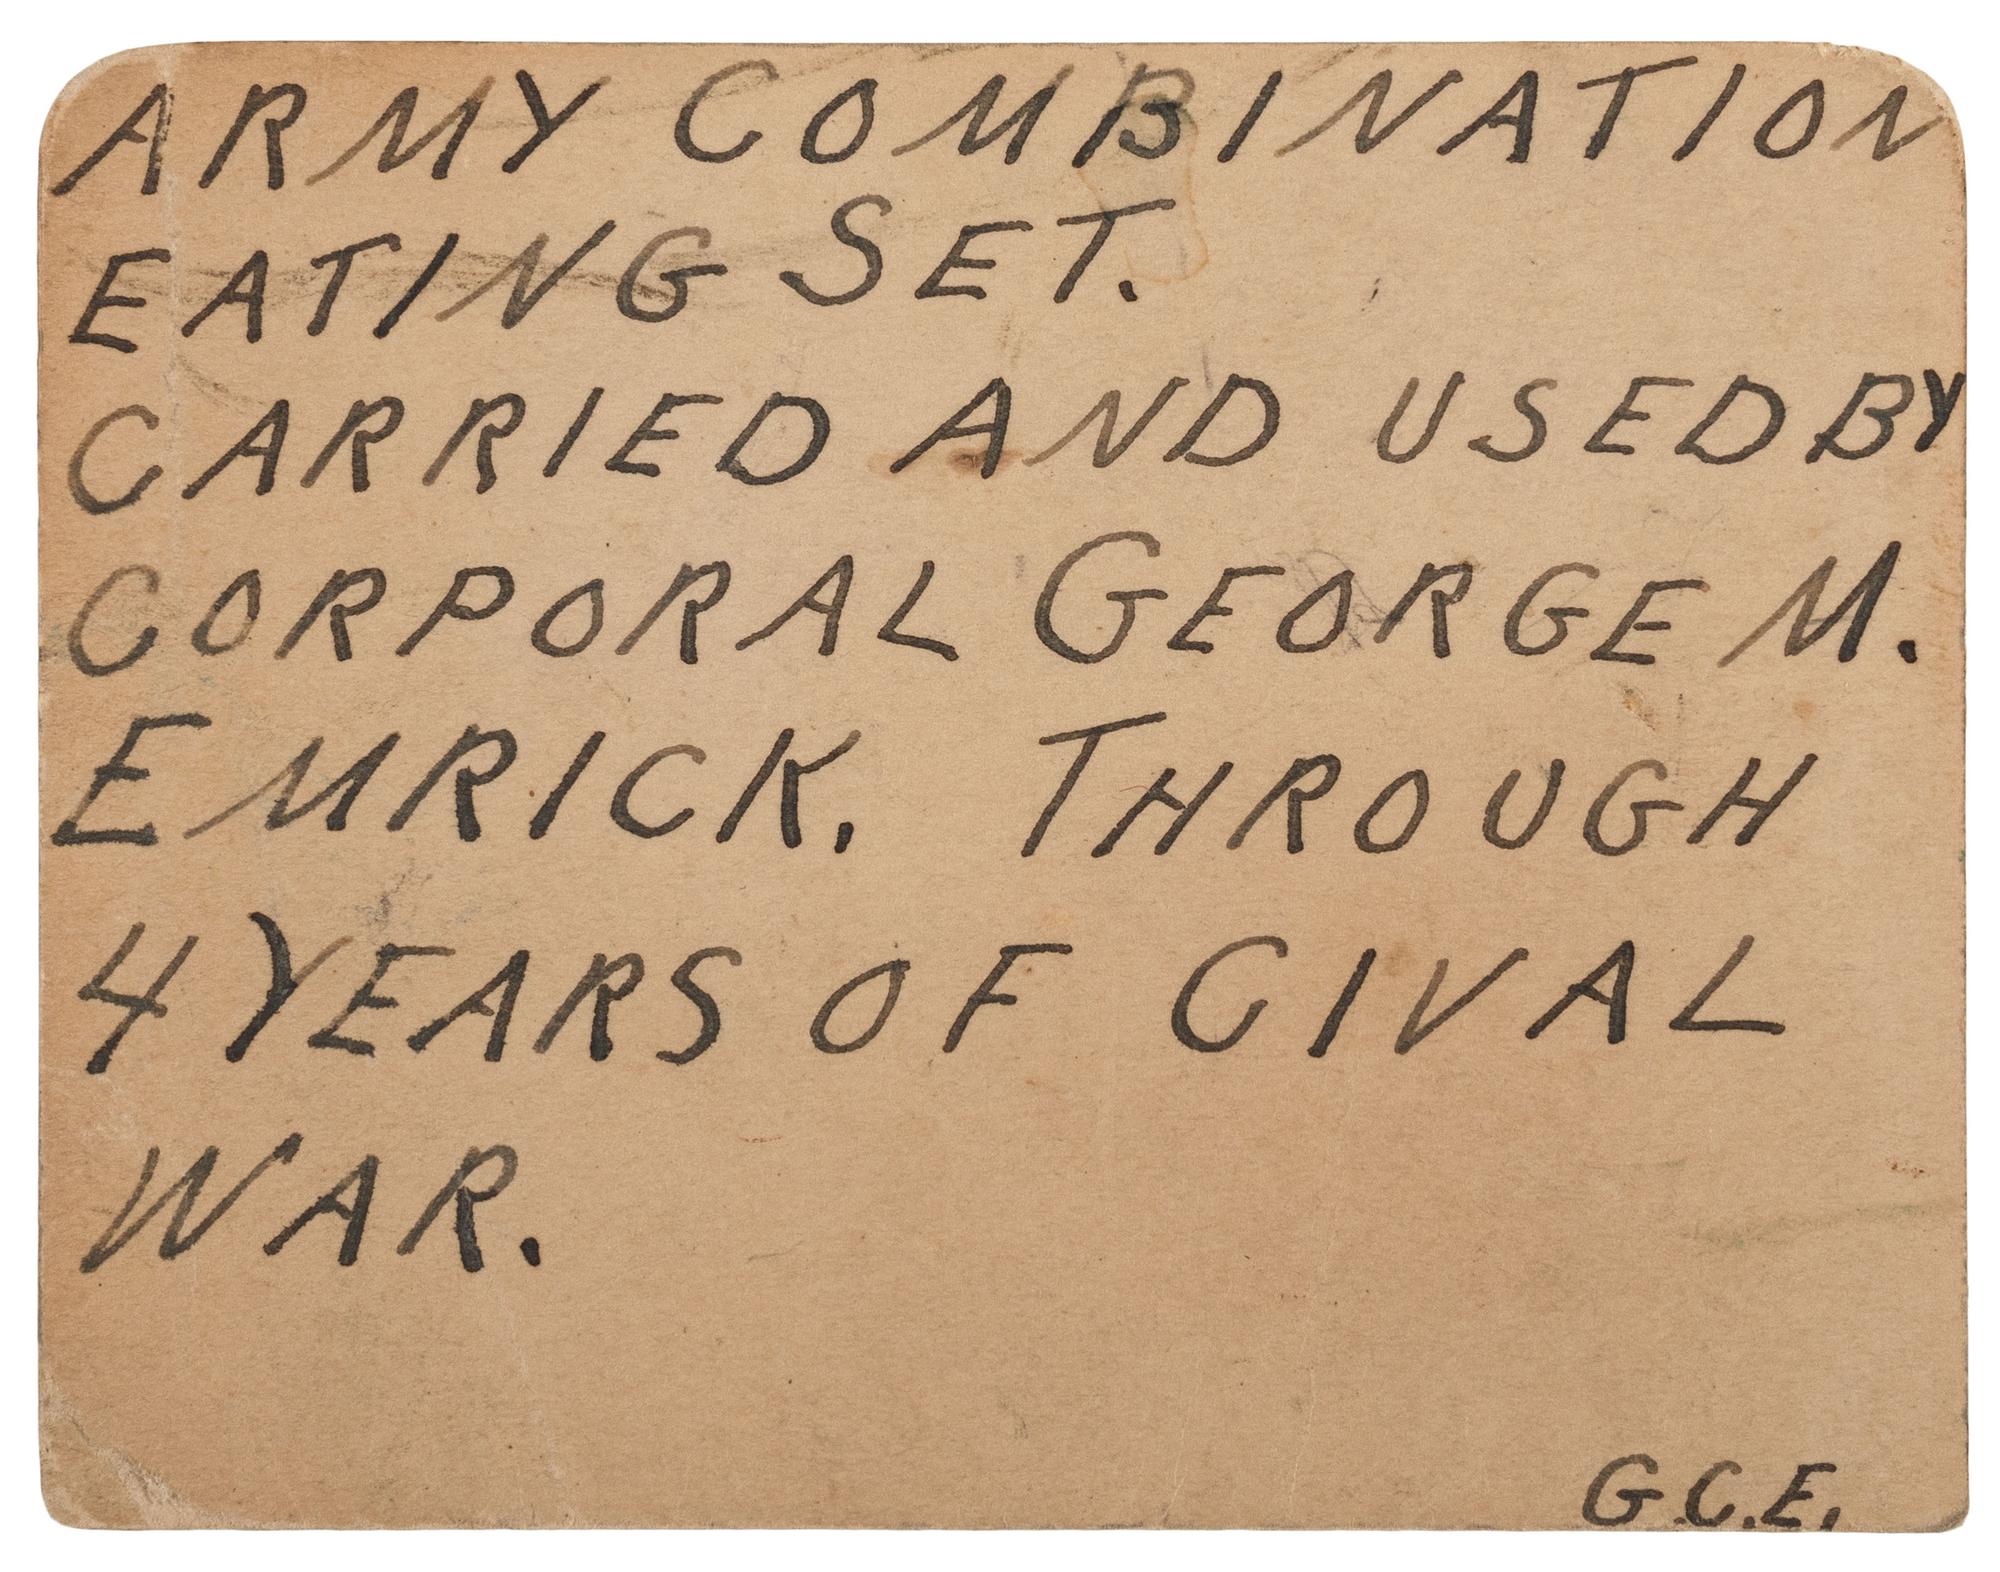 ARMY COMBINATION
EATING SET.
CARRIED AND USED BY
CORPORAL GEORGE M.
EMRICK. THROUGH
4 YEARS OF CIVAL
WAR.
G.C.E.